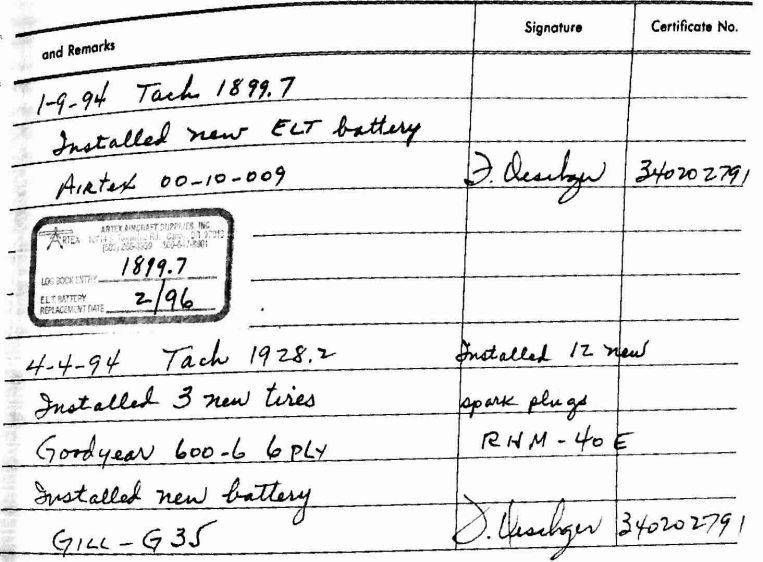 and Remarks
Signature
Certificate No.
1-9-94 Tach 1899.7
Installed new ELT battery
Airtex 00-10-009
340202791
ARTEX
ARTEX AIRCRAFT SUPPLIES, INC.
LOG BOOK ENTRY 1899.7
E.L.T. BATTERY
REPLACEMENT DATE 2/96
4-4-94 Tach 1928.2
Installed 3 new tires
Goodyear 600-6 6 PLY
Installed new battery
GILL-G35
Installed 12 new
spark plugs
RHM-40E
340202791